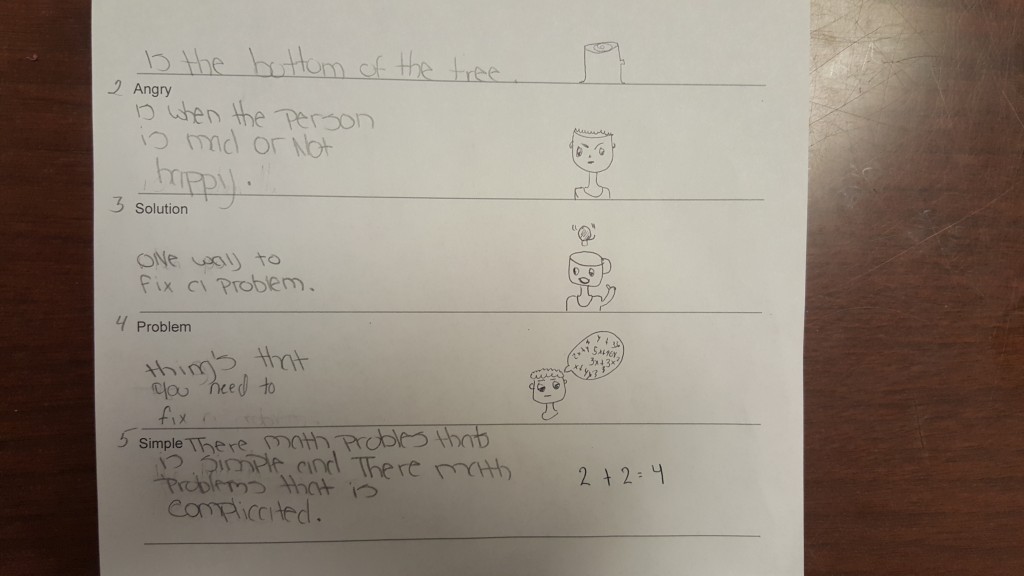 is the bottom of the tree.
2 Angry
is when the person
is mad or Not
happy.
3 Solution
ONe way to
Fix a problem.
4 Problem
thing's that
you need to
fix
5 Simple There math probles that
is simple and There math
Problems that is
compliccited.
2 + 2 = 4